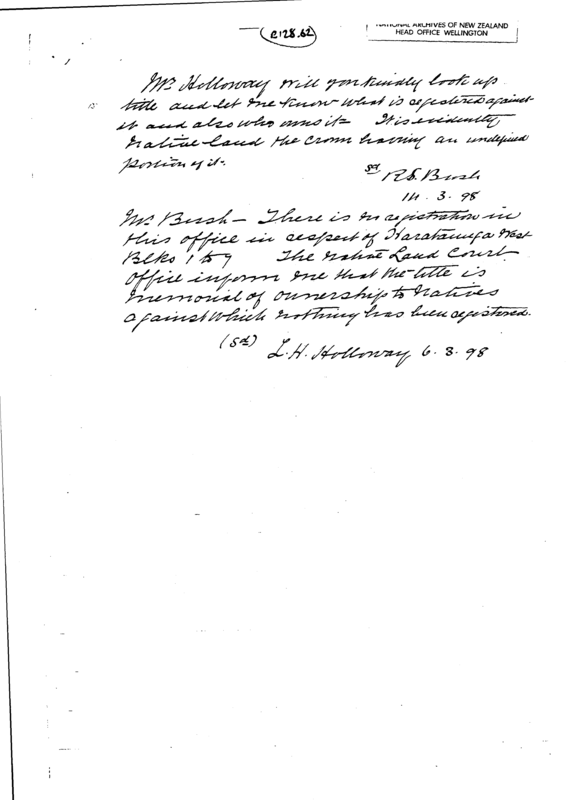 C128.62
NATIONAL ARCHIVES OF NEW ZEALAND
HEAD OFFICE WELLINGTON
Mr Holloway Will you kindly look up
title and let me know what is registered against
it and also who owns it It is evidently
Native land the Crown having an undefined
portion of it.
sd R.S. Bush
14.3.98
Mr Bush — There is no registration in
this office in respect of West
Blks 1 to 9 The Native Land Court
Office inform me that the title is
memorial of ownership to Natives
against which nothing has been registered.
(sd) L.H. Holloway 6.3.98